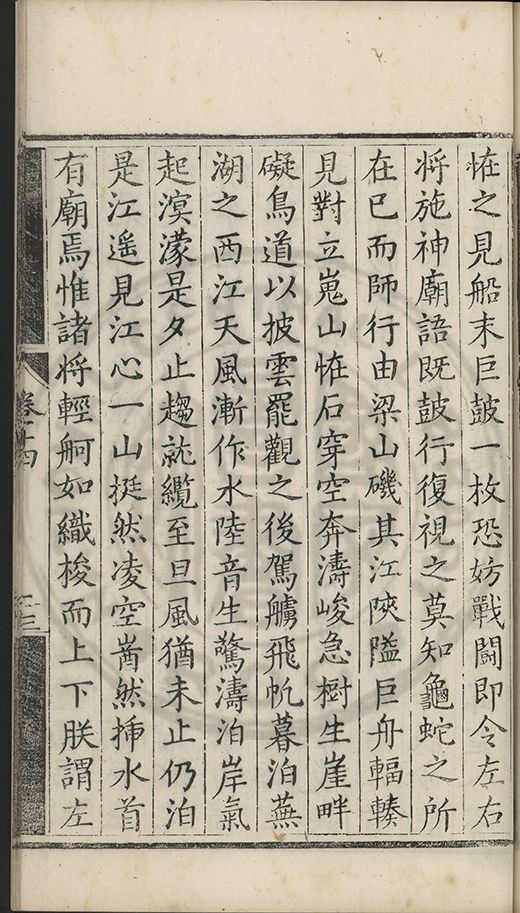 恠之見船末巨皷一枚恐妨戰鬪即令左右
将施神廟語既皷行復視之莫知龜蛇之所
在已而師行由梁山磯其江陜隘巨舟輻輳
見對立嵬山恠石穿空奔濤峻急樹生崖畔
礙鳥道以披雲罷觀之後駕艣飛帆暮泊蕪
湖之西江天風漸作水陸音生驚濤泊岸氣
起溟濛是夕止趨就纜至旦風猶未止仍泊
是江遥見江心一山挺然凌空崭然揷水首
有廟焉惟諸将輕舸如織梭而上下朕謂左
卷十四
二三